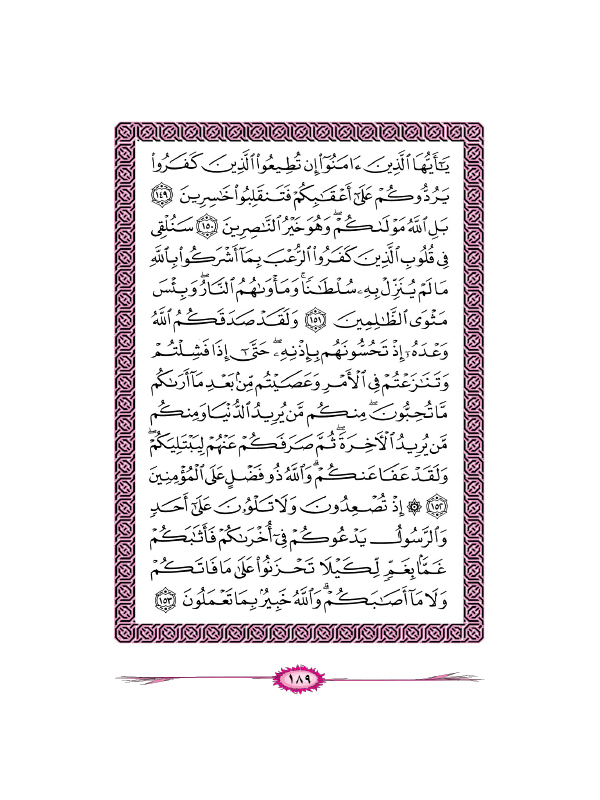 يَـٰٓأَيُّهَا ٱلَّذِينَ ءَامَنُوٓا۟ إِن تُطِيعُوا۟ ٱلَّذِينَ كَفَرُوا۟
يَرُدُّوكُمْ عَلَىٰٓ أَعْقَـٰبِكُمْ فَتَنقَلِبُوا۟ خَـٰسِرِينَ ١٤٩
بَلِ ٱللَّهُ مَوْلَىٰكُمْ ۖ وَهُوَ خَيْرُ ٱلنَّـٰصِرِينَ ١٥٠ سَنُلْقِى
فِى قُلُوبِ ٱلَّذِينَ كَفَرُوا۟ ٱلرُّعْبَ بِمَآ أَشْرَكُوا۟ بِٱللَّهِ
مَا لَمْ يُنَزِّلْ بِهِۦ سُلْطَـٰنًا ۖ وَمَأْوَىٰهُمُ ٱلنَّارُ ۚ وَبِئْسَ
مَثْوَى ٱلظَّـٰلِمِينَ ١٥١ وَلَقَدْ صَدَقَكُمُ ٱللَّهُ
وَعْدَهُۥٓ إِذْ تَحُسُّونَهُم بِإِذْنِهِۦ ۖ حَتَّىٰٓ إِذَا فَشِلْتُمْ
وَتَنَـٰزَعْتُمْ فِى ٱلْأَمْرِ وَعَصَيْتُم مِّنۢ بَعْدِ مَآ أَرَىٰكُم
مَّا تُحِبُّونَ ۚ مِنكُم مَّن يُرِيدُ ٱلدُّنْيَا وَمِنكُم
مَّن يُرِيدُ ٱلْـَٔاخِرَةَ ۚ ثُمَّ صَرَفَكُمْ عَنْهُمْ لِيَبْتَلِيَكُمْ ۖ
وَلَقَدْ عَفَا عَنكُمْ ۗ وَٱللَّهُ ذُو فَضْلٍ عَلَى ٱلْمُؤْمِنِينَ
١٥٢ ۞ إِذْ تُصْعِدُونَ وَلَا تَلْوُۥنَ عَلَىٰٓ أَحَدٍ
وَٱلرَّسُولُ يَدْعُوكُمْ فِىٓ أُخْرَىٰكُمْ فَأَثَـٰبَكُمْ
غَمًّۢا بِغَمٍّ لِّكَيْلَا تَحْزَنُوا۟ عَلَىٰ مَا فَاتَكُمْ
وَلَا مَآ أَصَـٰبَكُمْ ۗ وَٱللَّهُ خَبِيرٌۢ بِمَا تَعْمَلُونَ ١٥٣
١٨٩